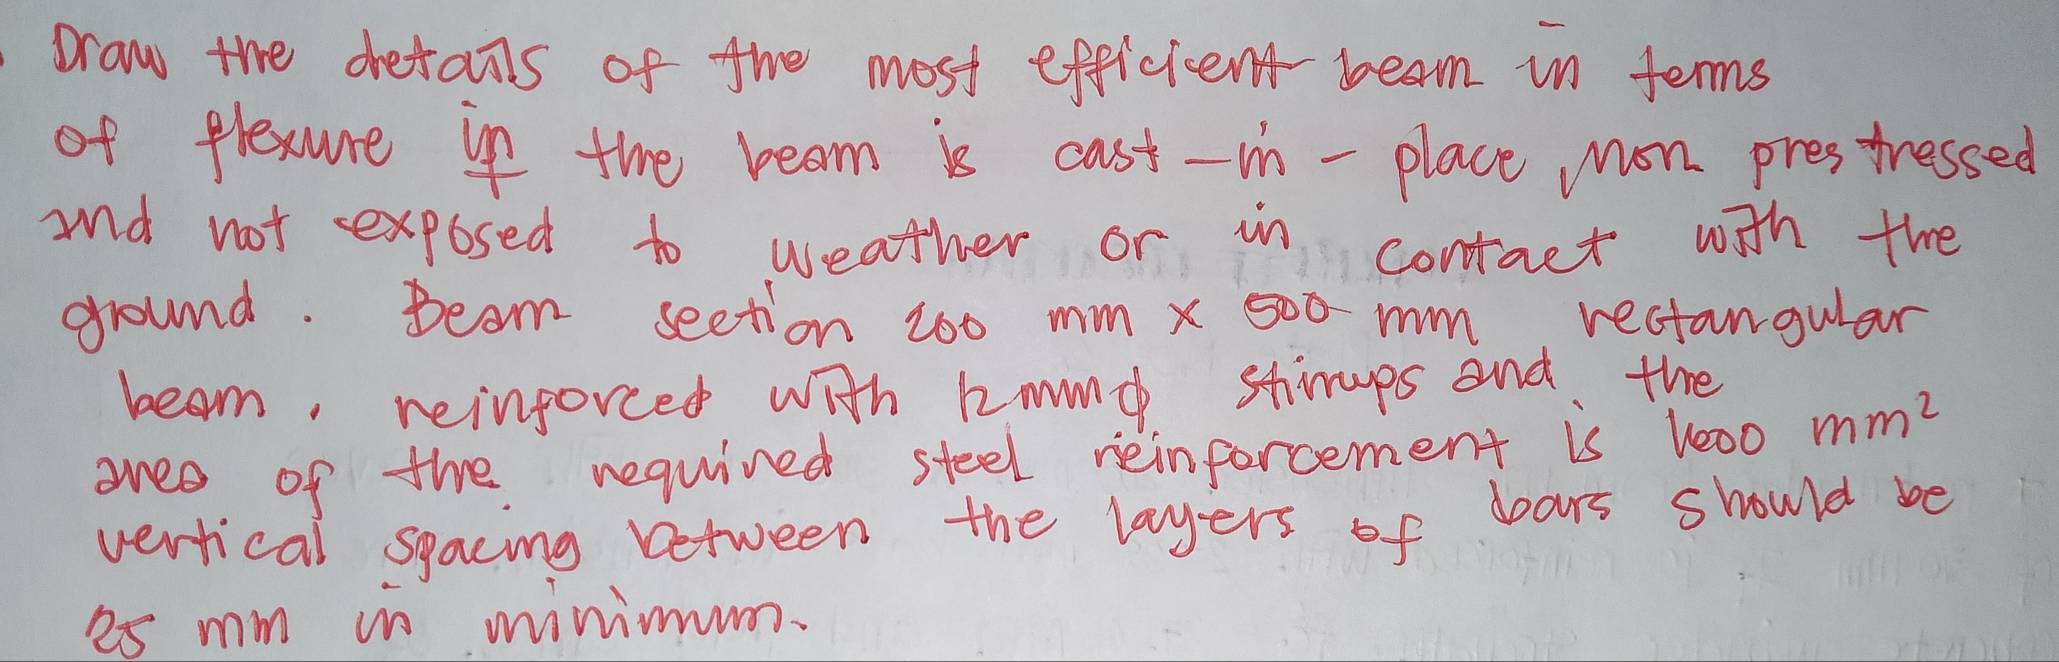 Draw the details of the most efficient beam in terms
of flexure if the beam is cast-in-place, non prestressed
and not exposed to weather or in contact with the
ground. Beam section 200 mm x 500 mm rectangular
beam, reinforced with 12mmϕ stirrups and the
area of the required steel reinforcement is mm²
vertical spacing between the layers of bars should be
25 mm in minimum.